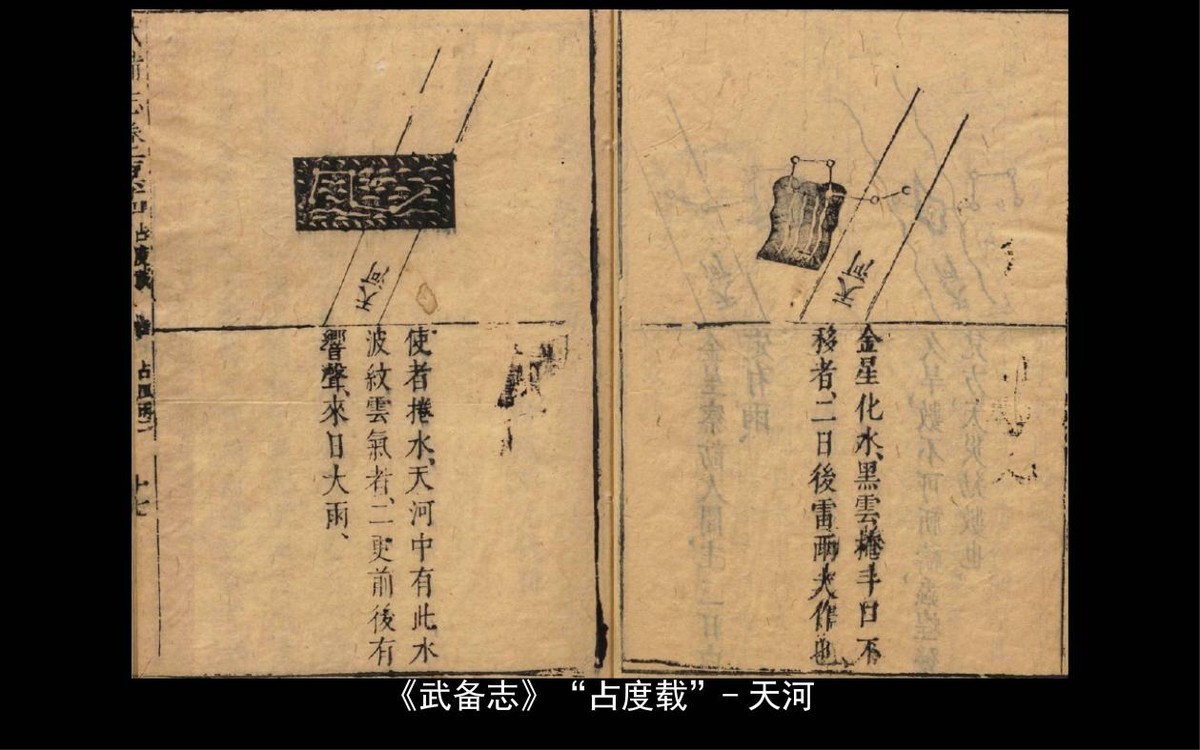 天河
金星化水、黑雲掩斗口不
移者、二日後雷雨大作也
天河
使者捲水、天河中有此水
波紋雲氣者、二更前後有
響聲、來日大雨、
占度載
占風雨二
十七
《武备志》“占度载”- 天河